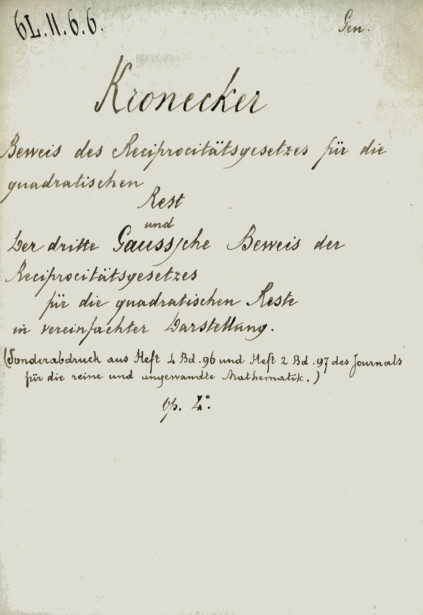 6L.11.6.6.
Gen.
Kronecker
Beweis des Reciprocitätsgesetzes für die
quadratischen
Rest
und
Der dritte Gausssche Beweis der
Reciprocitätsgesetzes
für die quadratischen Reste
in vereinfachter Darstellung.
(Sonderabdruck aus Heft 4 Bd. 96 und Heft 2 Bd. 97 des Journals
für die reine und angewandte Mathematik.)
op.